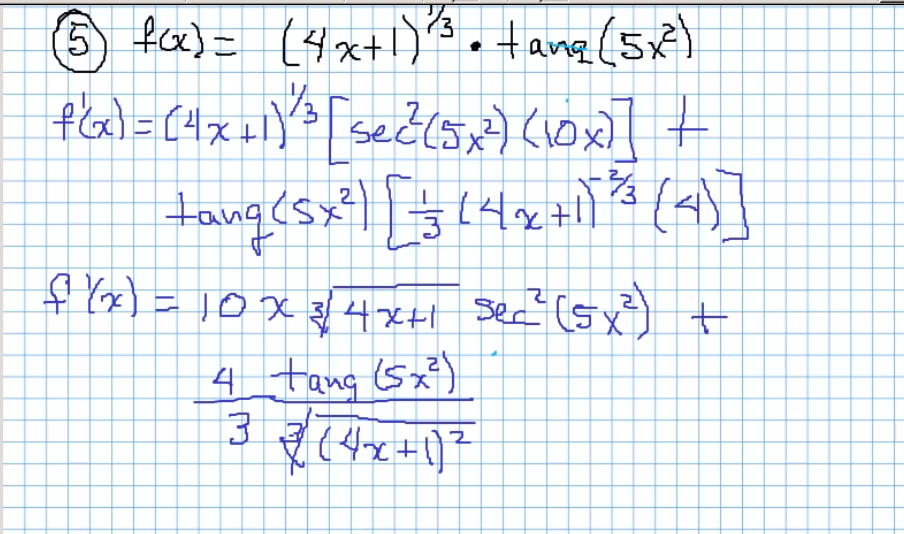 ⑤ f(x) = (4x+1)^{1/3} · tang(5x²)
f'(x) = (4x+1)^{1/3} [sec²(5x²) (10x)] +
tang(5x²) [1/3 (4x+1)^{-2/3} (4)]
f'(x) = 10x ∛(4x+1) sec²(5x²) +
4 tang(5x²)
3 ∛((4x+1)²)